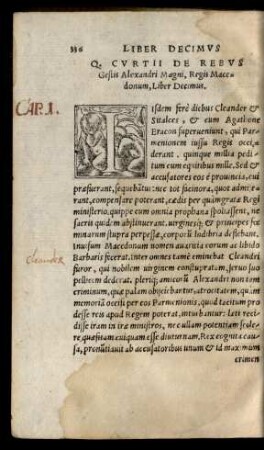 336 LIBER DECIMVS
Q. CVRTII DE REBVS
Gestis Alexandri Magni, Regis Mace-
donum, Liber Decimus.
CAP. I.
Iisdem ferè diebus Cleander &
Sitalces, & cum Agathone
Eracon superueniunt, qui Par-
menionem iussu Regis occi-
derant. quinque millia pedi-
tum cum equitibus mille. Sed &
accusatores eos è prouincia, cui
præfuerant, sequebātur: nec tot facinora, quot admise-
rant, compensare poterant, cædis per quàm gratæ Regi
ministerio. quippe cum omnia prophana spoliassent, ne
sacris quidem abstinuerant. uirginesq; & principes fœ-
minarum stupra perpessæ, corporū ludibria deflebant.
Inuisum Macedonum nomen auaritia eorum ac libido
Barbaris fecerat. inter omnes tamē eminebat Cleandri
Cleander
furor, qui nobilem uirginem constupratam, seruo suo
pellicem dederat. pleriq; amicorū Alexandri non tam
criminum, quæ palam obijciebantur, atrocitatem, quàm
memoriā occisi per eos Parmenionis, quod tacitum pro
desse reis apud Regem poterat, intuebantur: læti reci-
disse iram in iræ ministros, nec ullam potentiam scele-
re quæsitam cuiquam esse diuturnam. Rex cognita cau-
sa, pronūtiauit ab accusatoribus unum & id maximum
crimen